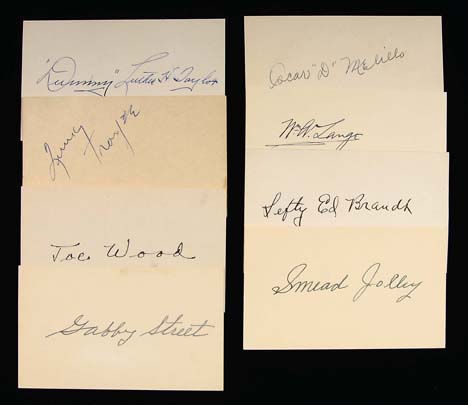 "Dummy" Luther H Taylor
Quincy
Joe Wood
Gabby Street
Oscar "D" Melillo
Wm A. Lange
Lefty Ed Brandt
Smead Jolley